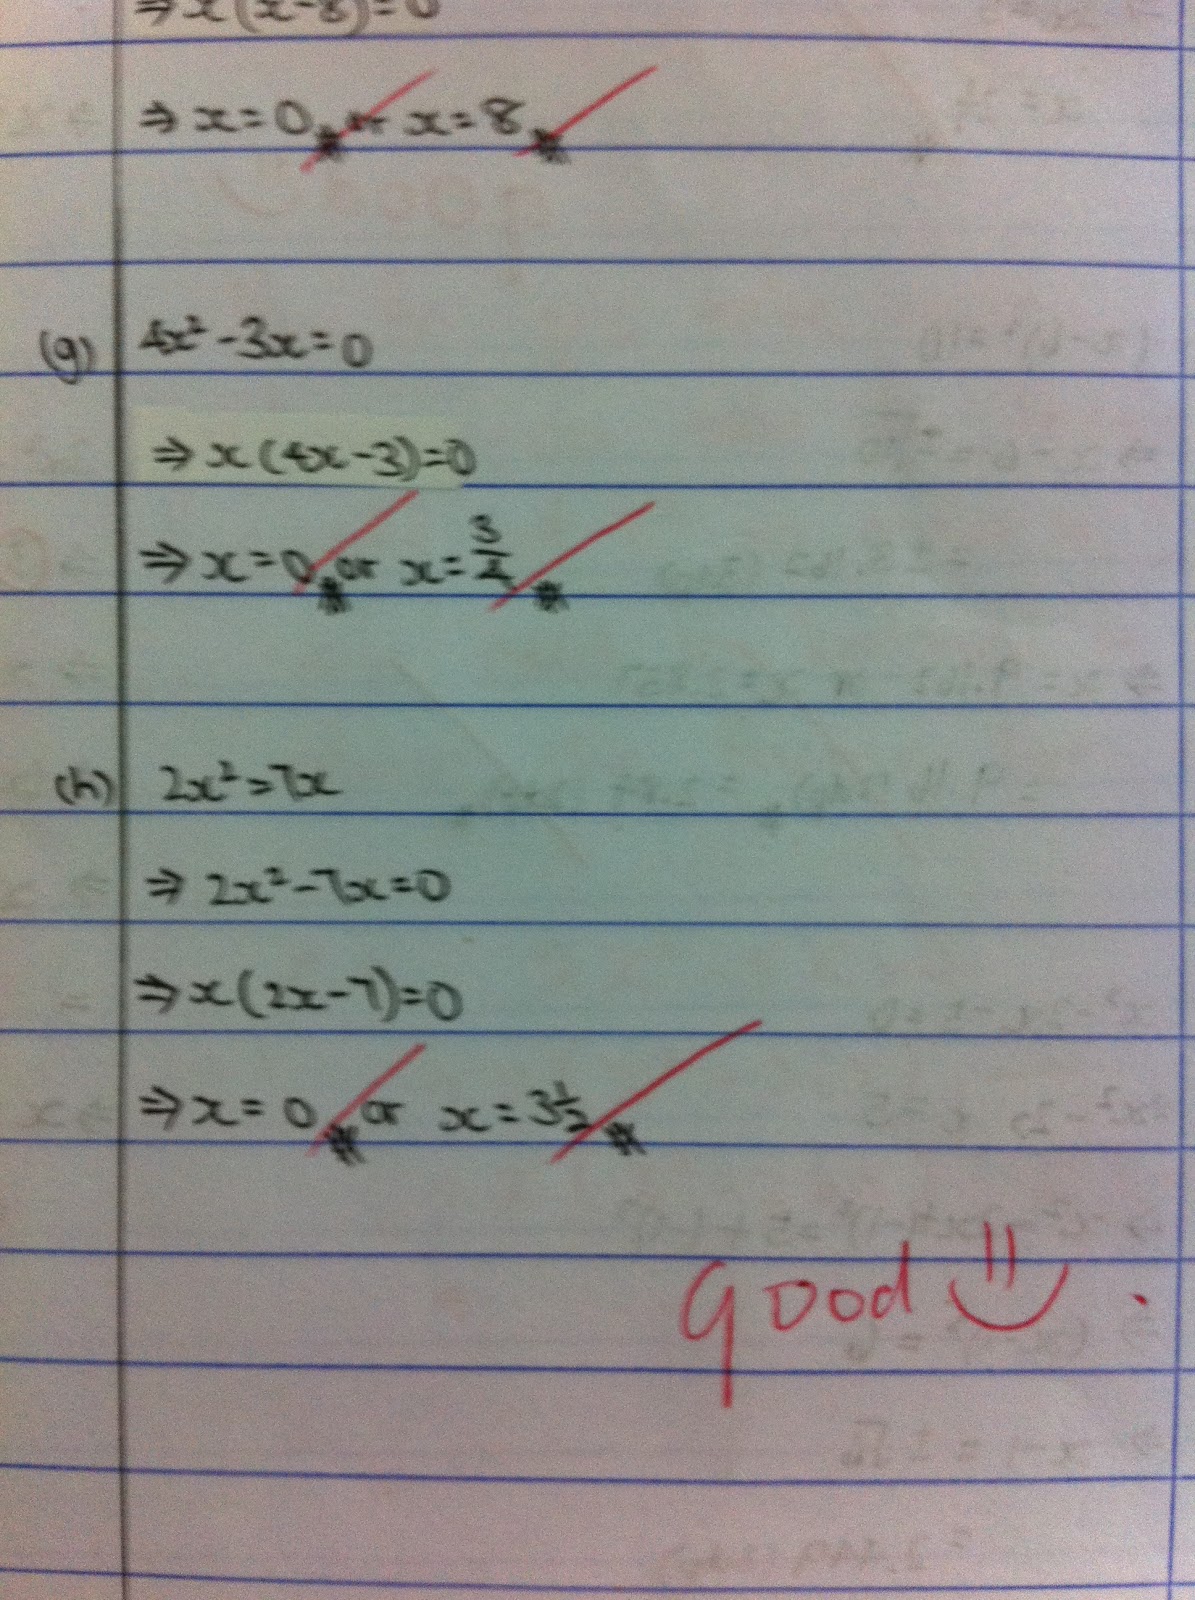 ⇒ x(x-8)=0
⇒ x=0 or x=8
(g) 4x²-3x=0
⇒ x(4x-3)=0
⇒ x=0 or x=3/4
(h) 2x²=7x
⇒ 2x²-7x=0
⇒ x(2x-7)=0
⇒ x=0 or x=3½
Good